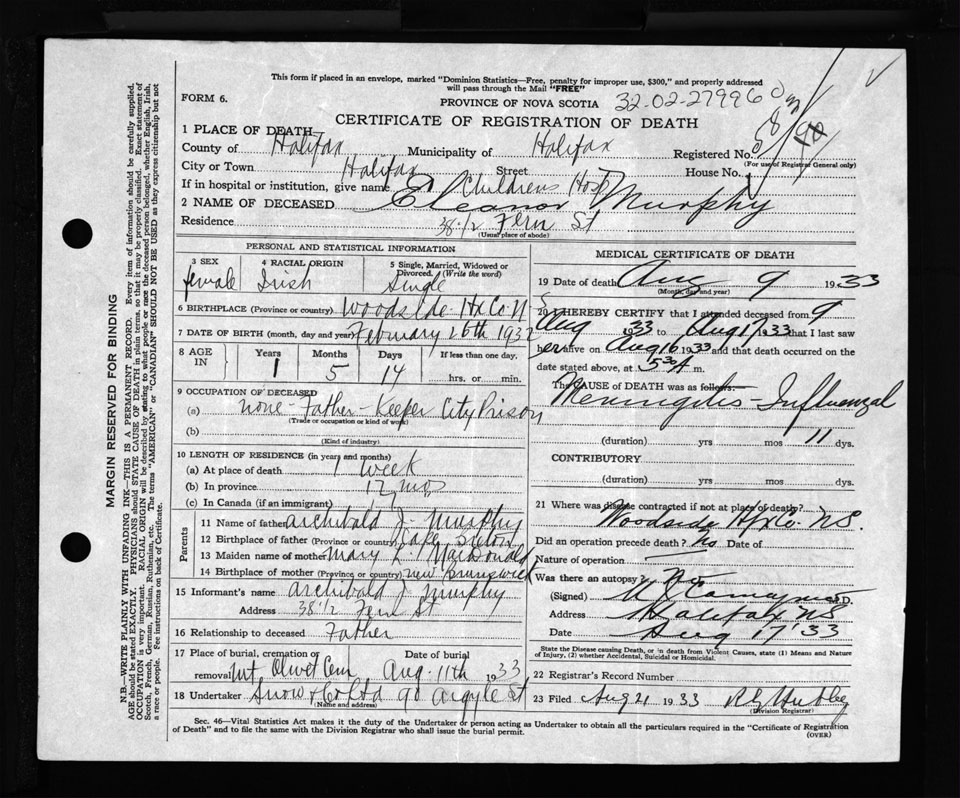 This form if placed in an envelope, marked "Dominion Statistics—Free, penalty for improper use, $300," and properly addressed
will pass through the Mail "FREE"
FORM 6.
PROVINCE OF NOVA SCOTIA 32-02-279960
CERTIFICATE OF REGISTRATION OF DEATH
1 PLACE OF DEATH
County of Halifax Municipality of Halifax Registered No.
(For use of Registrar General only)
City or Town Halifax Street House No.
If in hospital or institution, give name Childrens Hosp
2 NAME OF DECEASED Eleanor Murphy
Residence 38-1/2 Fern St
(Usual place of abode)
PERSONAL AND STATISTICAL INFORMATION
3 SEX female
4 RACIAL ORIGIN Irish
5 Single, Married, Widowed or Divorced. (Write the word) Single
6 BIRTHPLACE (Province or country) Woodside Hx Co N S
7 DATE OF BIRTH (month, day and year) February 26th 1932
8 AGE IN Years 1 Months 5 Days 14 If less than one day, hrs. or min.
9 OCCUPATION OF DECEASED
(a) none - Father - Keeper City Prison
(Trade or occupation or kind of work)
(b)
(Kind of industry)
10 LENGTH OF RESIDENCE (in years and months)
(a) At place of death 1 week
(b) In province 17 mos
(c) In Canada (if an immigrant)
Parents
11 Name of father Archibald J. Murphy
12 Birthplace of father (Province or country) Cape Breton
13 Maiden name of mother Mary MacDonald
14 Birthplace of mother (Province or country) New Brunswick
15 Informant's name Archibald J Murphy
Address 38 1/2 Fern St
16 Relationship to deceased Father
17 Place of burial, cremation or removal Mt Olivet Cem Date of burial Aug - 11th 1933
18 Undertaker Snow & Co Ltd 90 Argyle St
(Name and address)
MEDICAL CERTIFICATE OF DEATH
19 Date of death Aug 9 1933
(Month, day and year)
20 I HEREBY CERTIFY that I attended deceased from 9
Aug 1933 to Aug 1933 that I last saw
her alive on Aug 1933 and that death occurred on the
date stated above, at 5 A m.
The CAUSE OF DEATH was as follows:
Meningitis - Influenzal
(duration) yrs mos 11 dys.
CONTRIBUTORY
(duration) yrs mos dys.
21 Where was disease contracted if not at place of death? Woodside Hx Co. NS.
Did an operation precede death? No Date of
Nature of operation
Was there an autopsy? No
(Signed) M.D.
Address Halifax NS
Date Aug 17 '33
State the Disease causing Death, or in death from Violent Causes, state (1) Means and Nature
of Injury, (2) whether Accidental, Suicidal or Homicidal.
22 Registrar's Record Number
23 Filed Aug 21 1933
(Division Registrar)
Sec. 46—Vital Statistics Act makes it the duty of the Undertaker or person acting as Undertaker to obtain all the particulars required in the "Certificate of Registration
of Death" and to file the same with the Division Registrar who shall issue the burial permit.
(OVER)
MARGIN RESERVED FOR BINDING
N.B.—WRITE PLAINLY WITH UNFADING INK—THIS IS A PERMANENT RECORD. Every item of information should be carefully supplied.
AGE should be stated EXACTLY. PHYSICIANS should STATE CAUSE OF DEATH in plain terms, so that it may be properly classified. Exact statement of
OCCUPATION is very important. RACIAL ORIGIN will be described by stating to what people or race the deceased person belonged, whether English, Irish,
Scotch, French, German, Russian, Ruthenian, etc. The terms "AMERICAN" or "CANADIAN" SHOULD NOT BE USED as they express citizenship but not
a race or people. See instructions on back of Certificate.